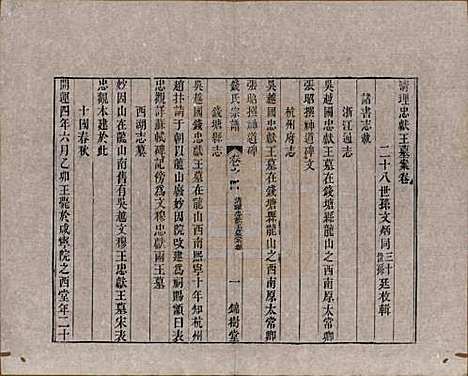 清理忠獻王墓案卷
二十八世孫文炳同三十世孫廷枚輯
諸書志載
浙江通志
吳越國忠獻王墓在錢塘縣龍山之西南原太常卿
張昭撰神道碑文
杭州府志
吳越國忠獻王墓在錢塘縣龍山之西南原太常卿
張昭撰神道碑
錢氏宗譜 卷之 清理忠獻王墓案卷 一 錦樹堂
錢塘縣志
吳越國忠獻王墓在龍山西南熙寧十年知杭州
趙抃請于朝以龍山廢妙因院改建爲祠賜額曰表
忠觀許蘇軾碑記傍爲文穆忠獻兩王墓
西湖志墓
妙因山在龍山南舊有吳越文穆王忠獻王墓宋表
忠觀本建於此
十國春秋
開運四年六月乙卯王薨於咸寧院之西堂年二十